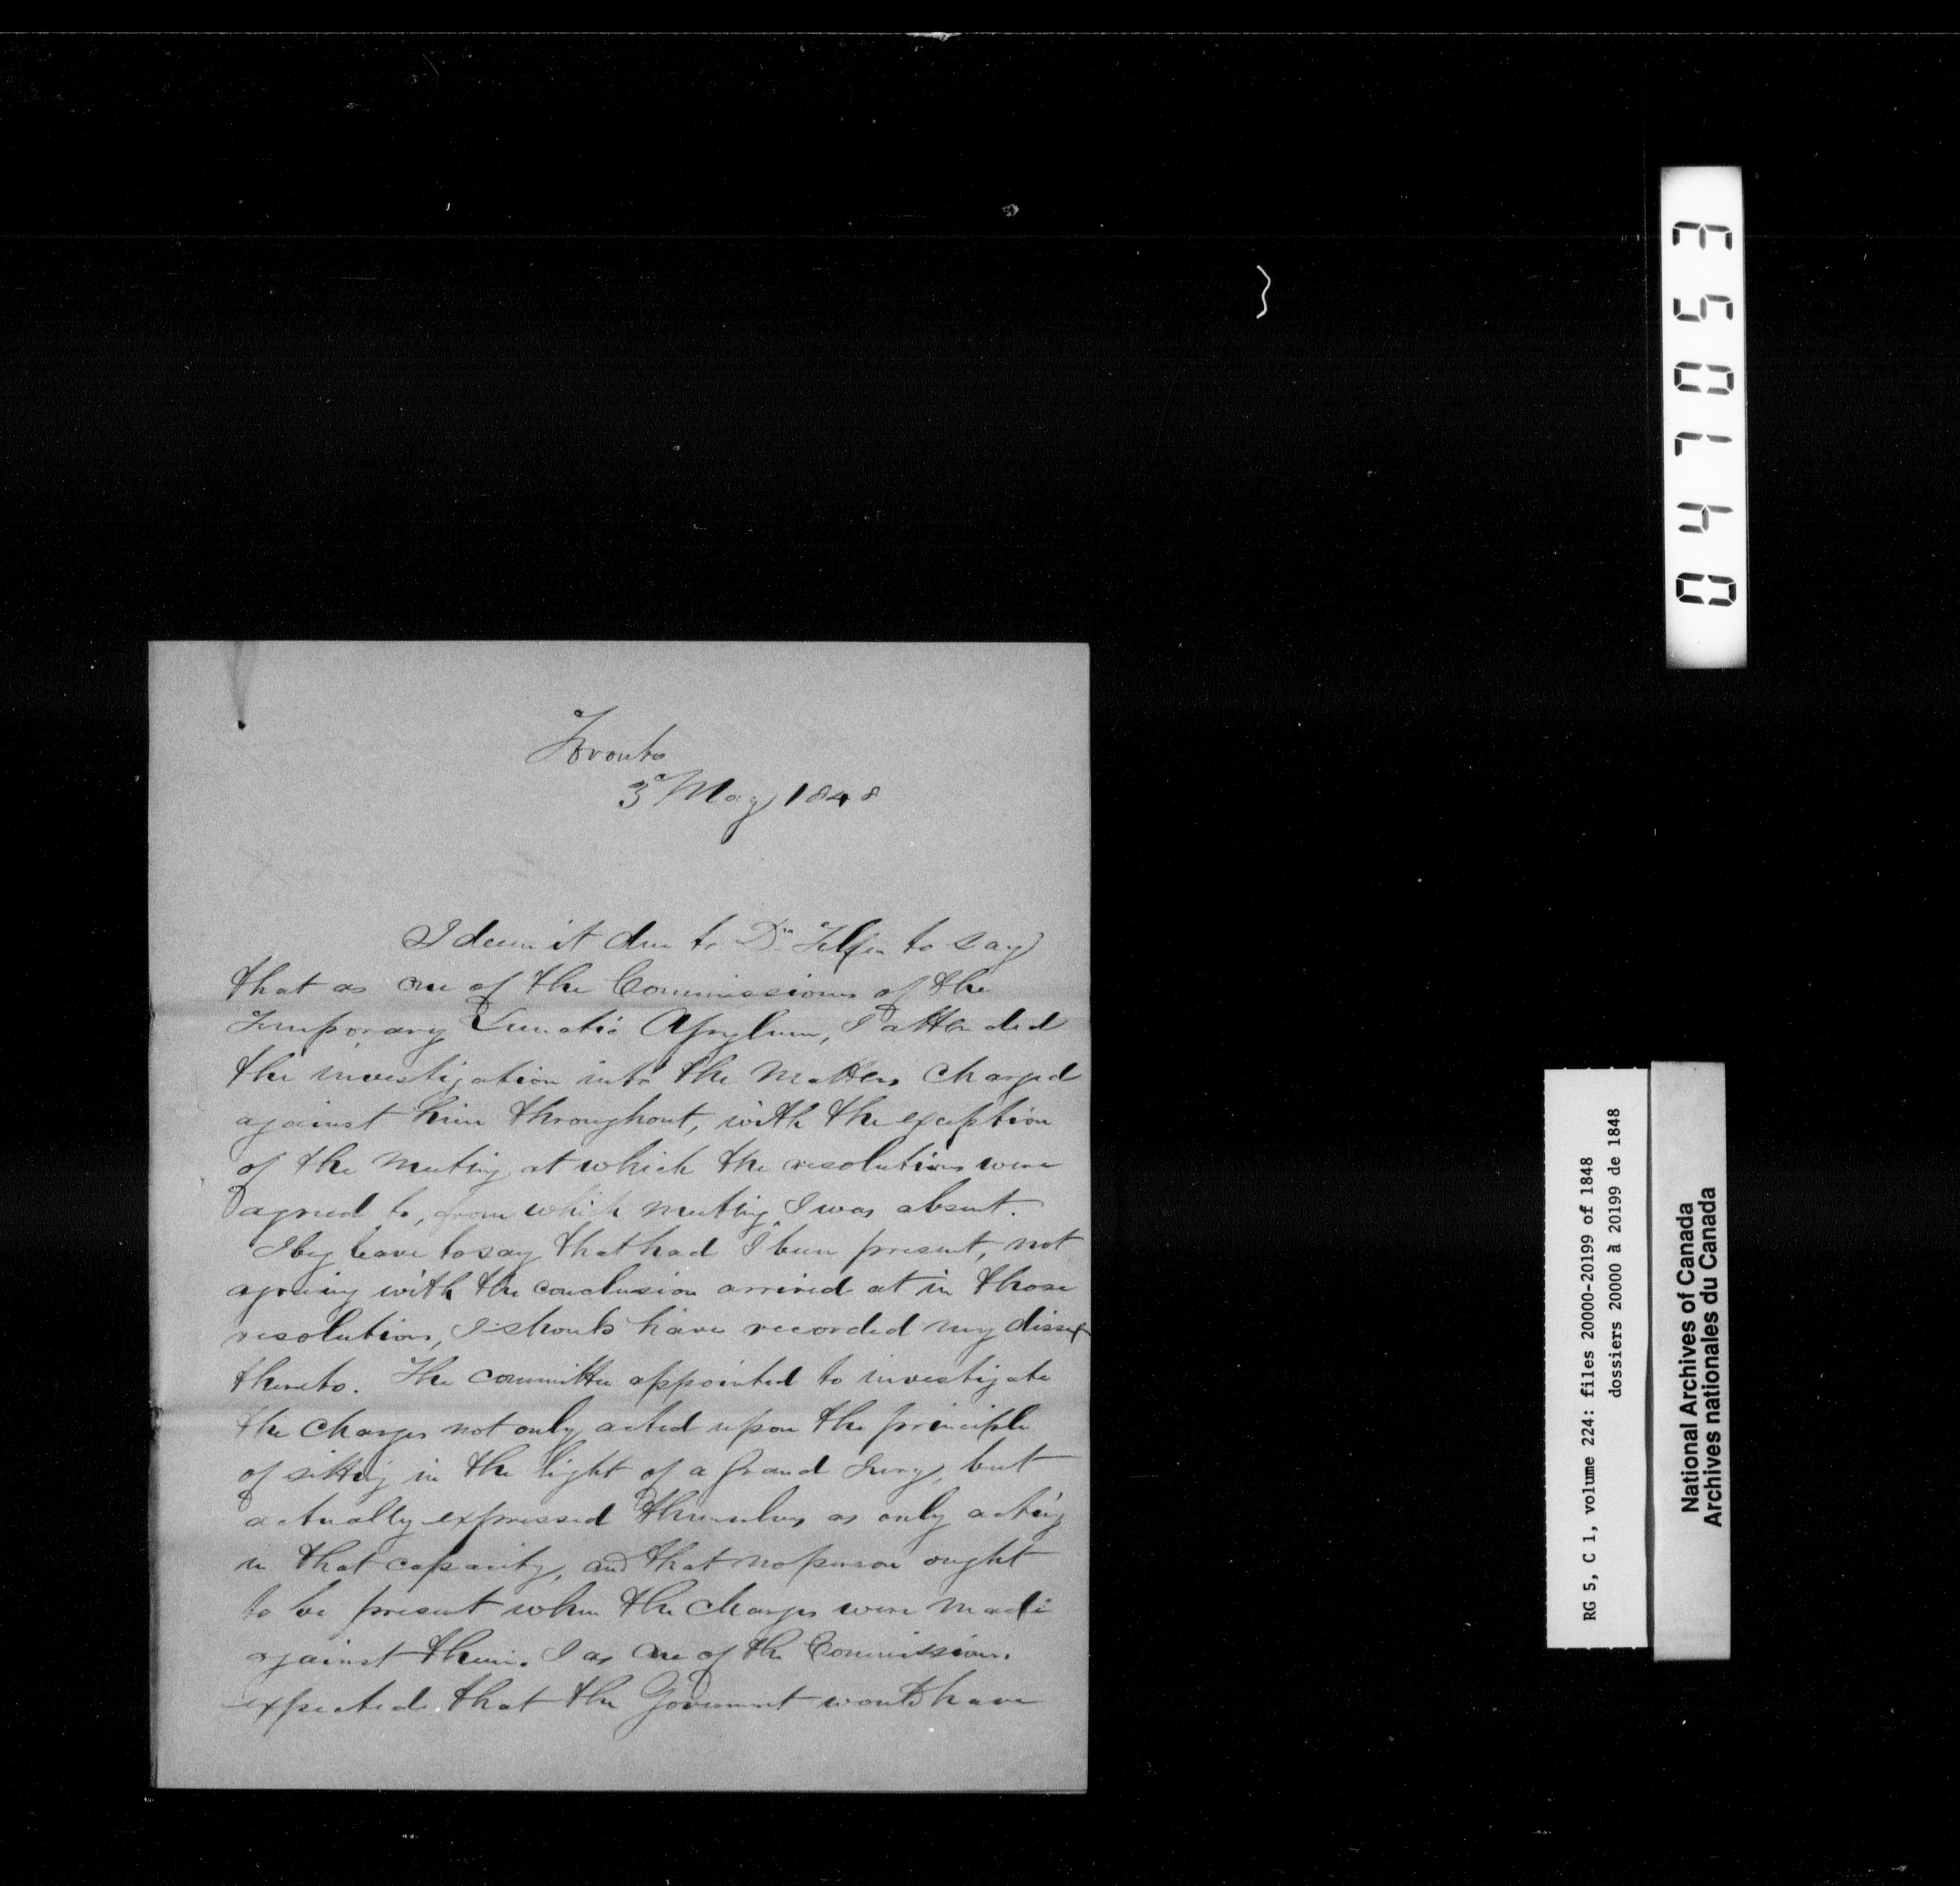 Toronto
3d May 1848
I deem it due to Dr. Telfer to say
that as one of the Commissioners of the
Temporary Lunatic Asylum, I attended
the investigation into the matters charged
against him throughout, with the exception
of the meeting at which the resolutions were
agreed to, from which meeting I was absent.
I beg leave to say that had I been present, not
agreeing with the conclusion arrived at in those
resolutions, I should have recorded my dissent
thereto. The committee appointed to investigate
the charges not only acted upon the principle
of sitting in the light of a Grand Jury, but
actually expressed themselves as only acting
in that capacity, and that no person ought
to be present when the charges were made
against them. I as one of the Commissioners
expected that the Government would have
047053
RG 5, C 1, volume 224: files 20000-20199 of 1848
dossiers 20000 à 20199 de 1848
National Archives of Canada
Archives nationales du Canada